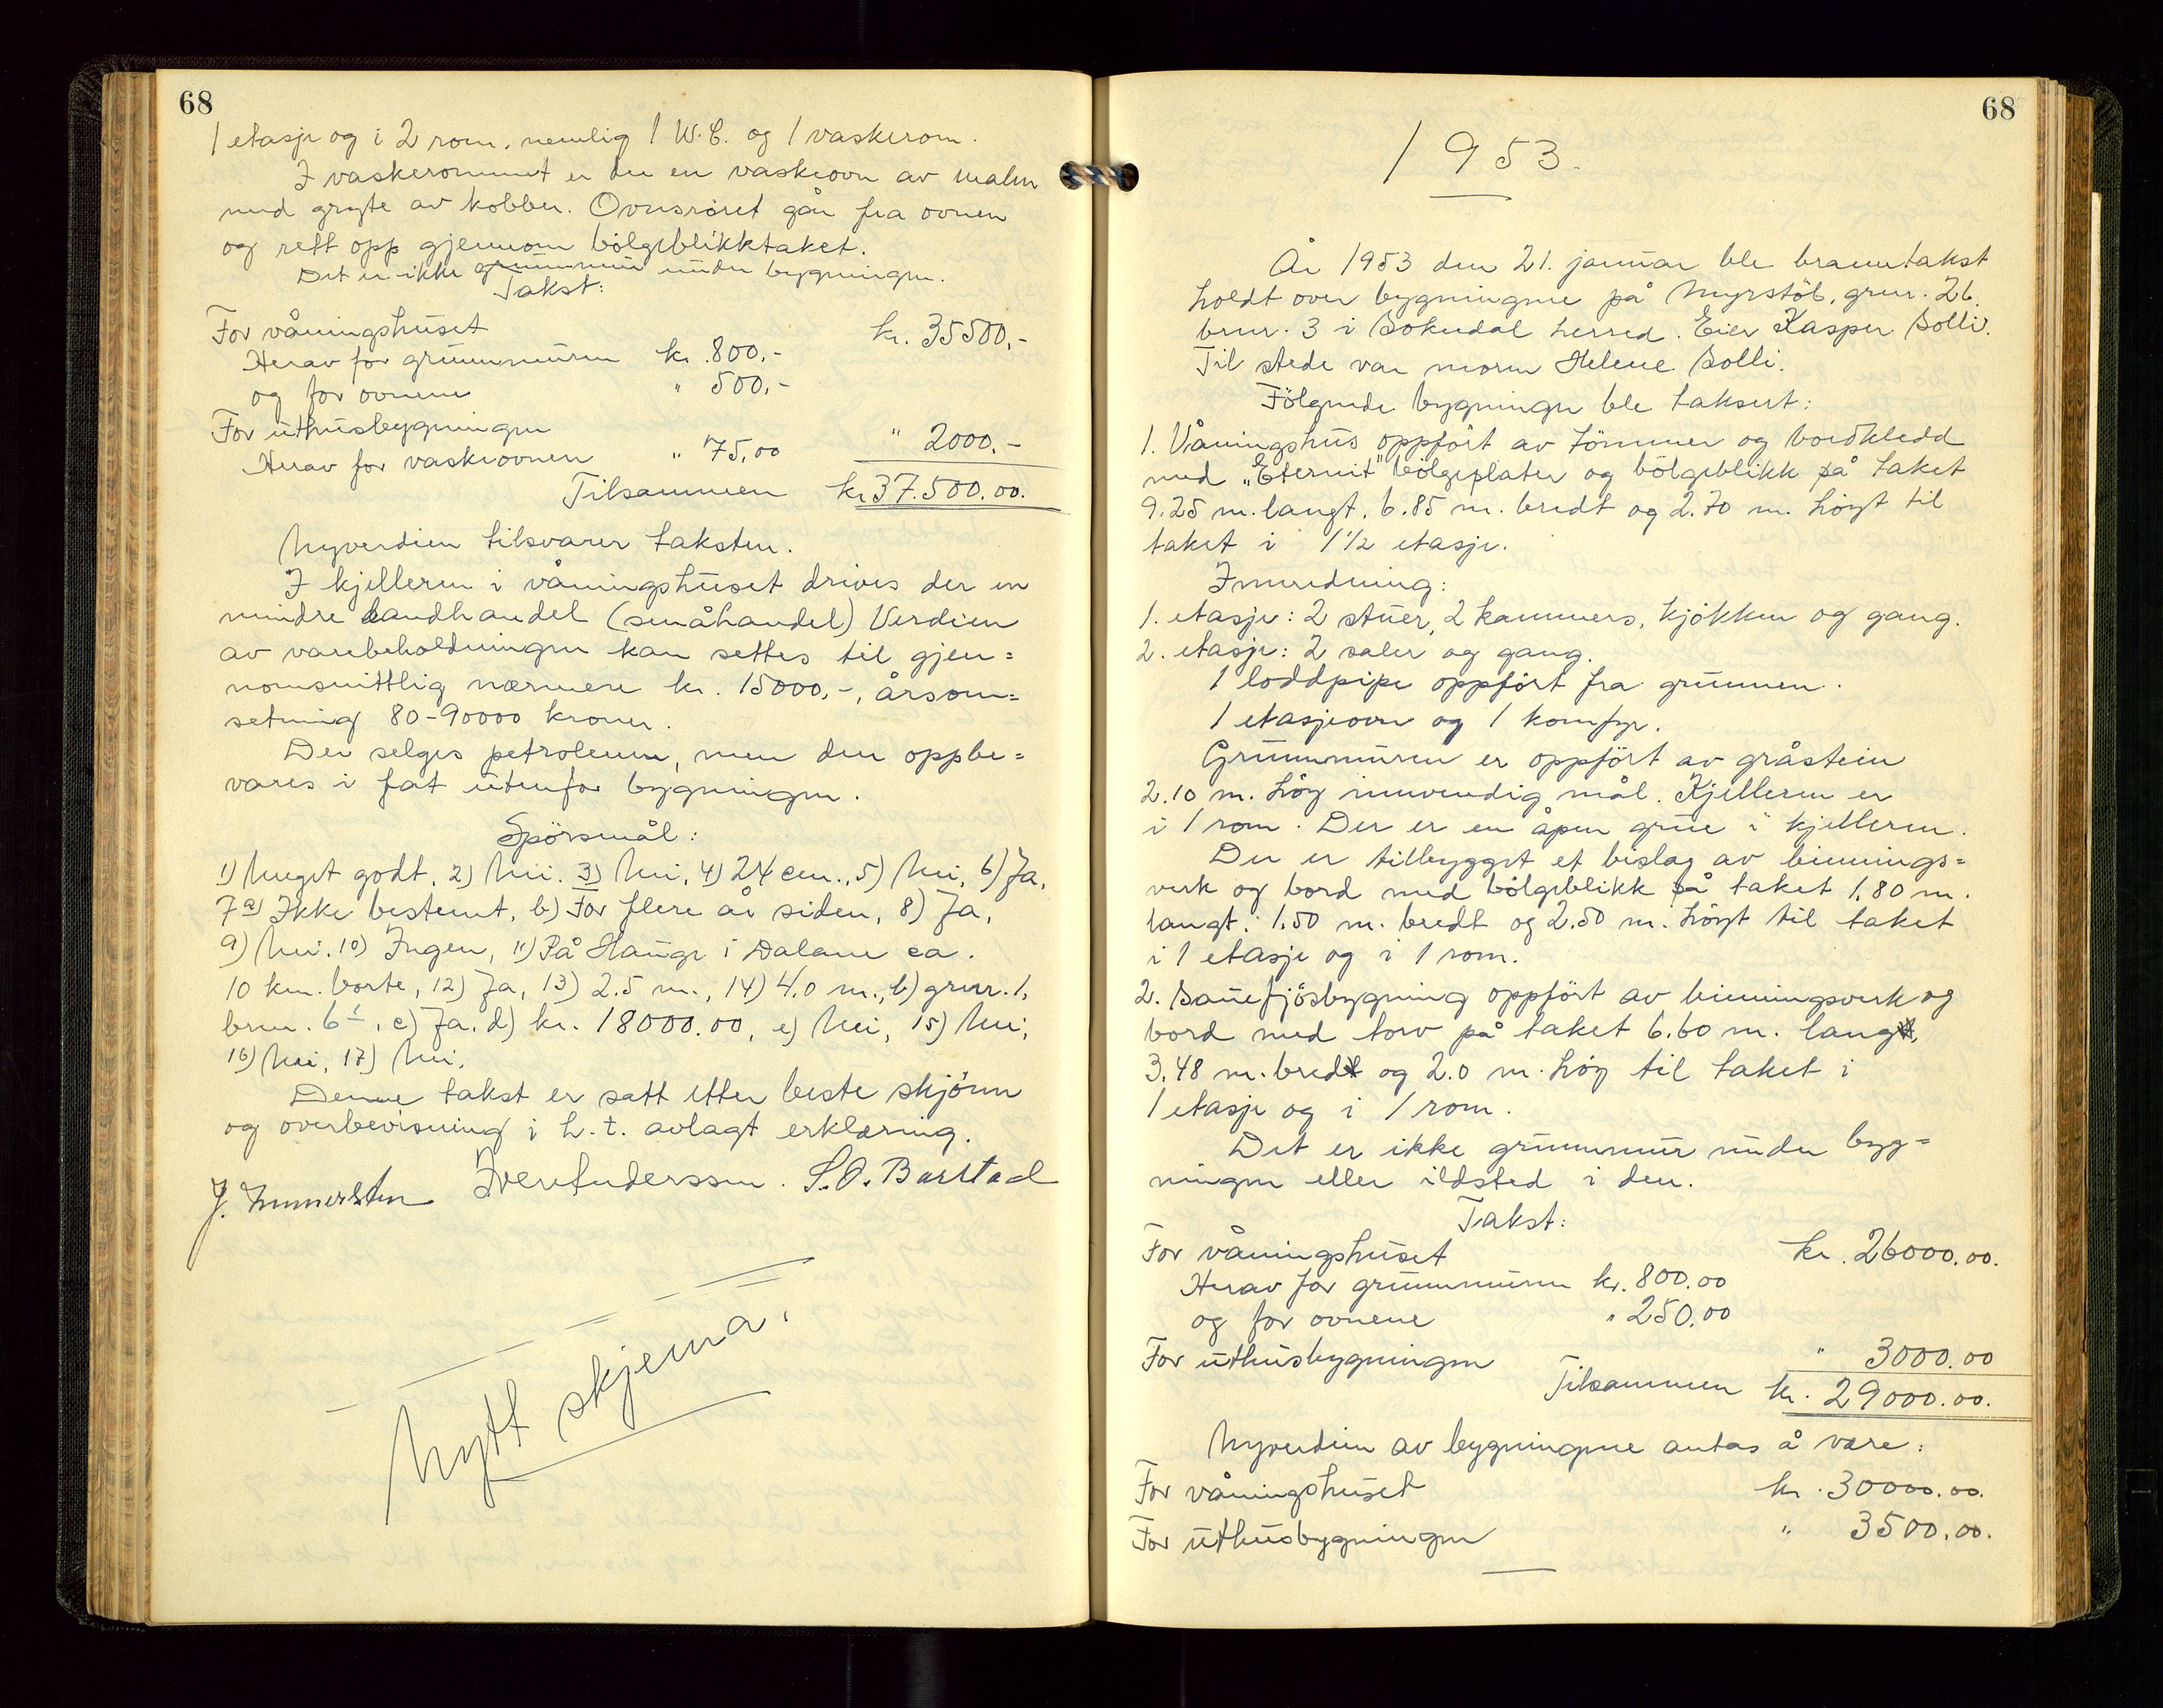 68
1 etasje og i 2 rom, nemlig 1 W.C. og 1 vaskerom.
I vaskerommet er der en vaskeovn av malm
med gryte av kobber. Ovnsröret går fra ovnen
og rett opp gjennom bölgeblikktaket.
Det er ikke grunnmur under bygningen.
Takst:
For våningshuset kr. 35500,-
Herav for grunnmuren kr. 800,-
og for ovnene " 500,-
For uthusbygningen " 2000,-
Herav for vaskeovnen " 75,00
Tilsammen kr 37.500.00.
Nyverdien tilsvarer taksten.
I kjelleren i våningshuset drives der en
mindre landhandel (småhandel) Verdien
av varebeholdningen kan settes til gjen=
nomsnittlig nærmere kr. 15000,-, årsom=
setning 80-90000 kroner.
Der selges petroleum, men den oppbe=
vares i fat utenfor bygningen.
Spörsmål:
1) Meget godt, 2) Nei. 3) Nei, 4) 24 cm., 5) Nei, 6) Ja,
7 a) Ikke bestemt, b) For flere år siden, 8) Ja,
9) Nei. 10) Ingen, 11) På Hauge i Dalane ca.
10 km. borte, 12) Ja, 13) 2.5 m., 14) 4.0 m., b) grnr. 1,
brnr. 6, c) Ja, d) kr. 18000.00, e) Nei, 15) Nei,
16) Nei, 17) Nei.
Denne takst er satt etter beste skjönn
og overbevisning i h. t. avlagt erklæring.
J. Immerstein Iver Anderssen. S.O. Barstad
Nytt skjema.
68
1953.
År 1953 den 21. januar ble branntakst
holdt over bygningene på Myrstöl, grnr. 26.
brnr. 3 i Sokndal herred. Eier Kasper Solli.
Til stede var moren Helene Solli.
Fölgende bygninger ble taksert:
1. Våningshus oppfört av tömmer og bordkledd
med "Eternit" bölgeplater og bölgeblikk på taket
9.25 m. langt, 6.85 m. bredt og 2.70 m. höyt til
taket i 1 1/2 etasje.
Innredning:
1. etasje: 2 stuer, 2 kammers, kjökken og gang.
2. etasje: 2 saler og gang.
1 loddpipe oppfört fra grunnen.
1 etasjeovn og 1 komfyr.
Grunnmuren er oppfört av gråstein
2.10 m. höy innvendig mål. Kjelleren er
i 1 rom. Der er en åpen grue i kjelleren.
Der er tilbygget et bislag av binnings=
verk og bord med bölgeblikk på taket 1.80 m.
langt, 1.50 m. bredt og 2.50 m. höyt til taket
i 1 etasje og i 1 rom.
2. Sauefjösbygning oppfört av binningsverk og
bord med torv på taket 6.60 m. lang,
3.48 m. bred og 2.0 m. höy til taket i
1 etasje og i 1 rom.
Det er ikke grunnmur under byg=
ningen eller ildsted i den.
Takst:
For våningshuset kr. 26000.00.
Herav for grunnmuren kr. 800.00
og for ovnene " 250.00
For uthusbygningen " 3000.00
Tilsammen kr. 29000.00.
Nyverdien av bygningene antas å være:
For våningshuset kr. 30000.00.
For uthusbygningen " 3500.00.